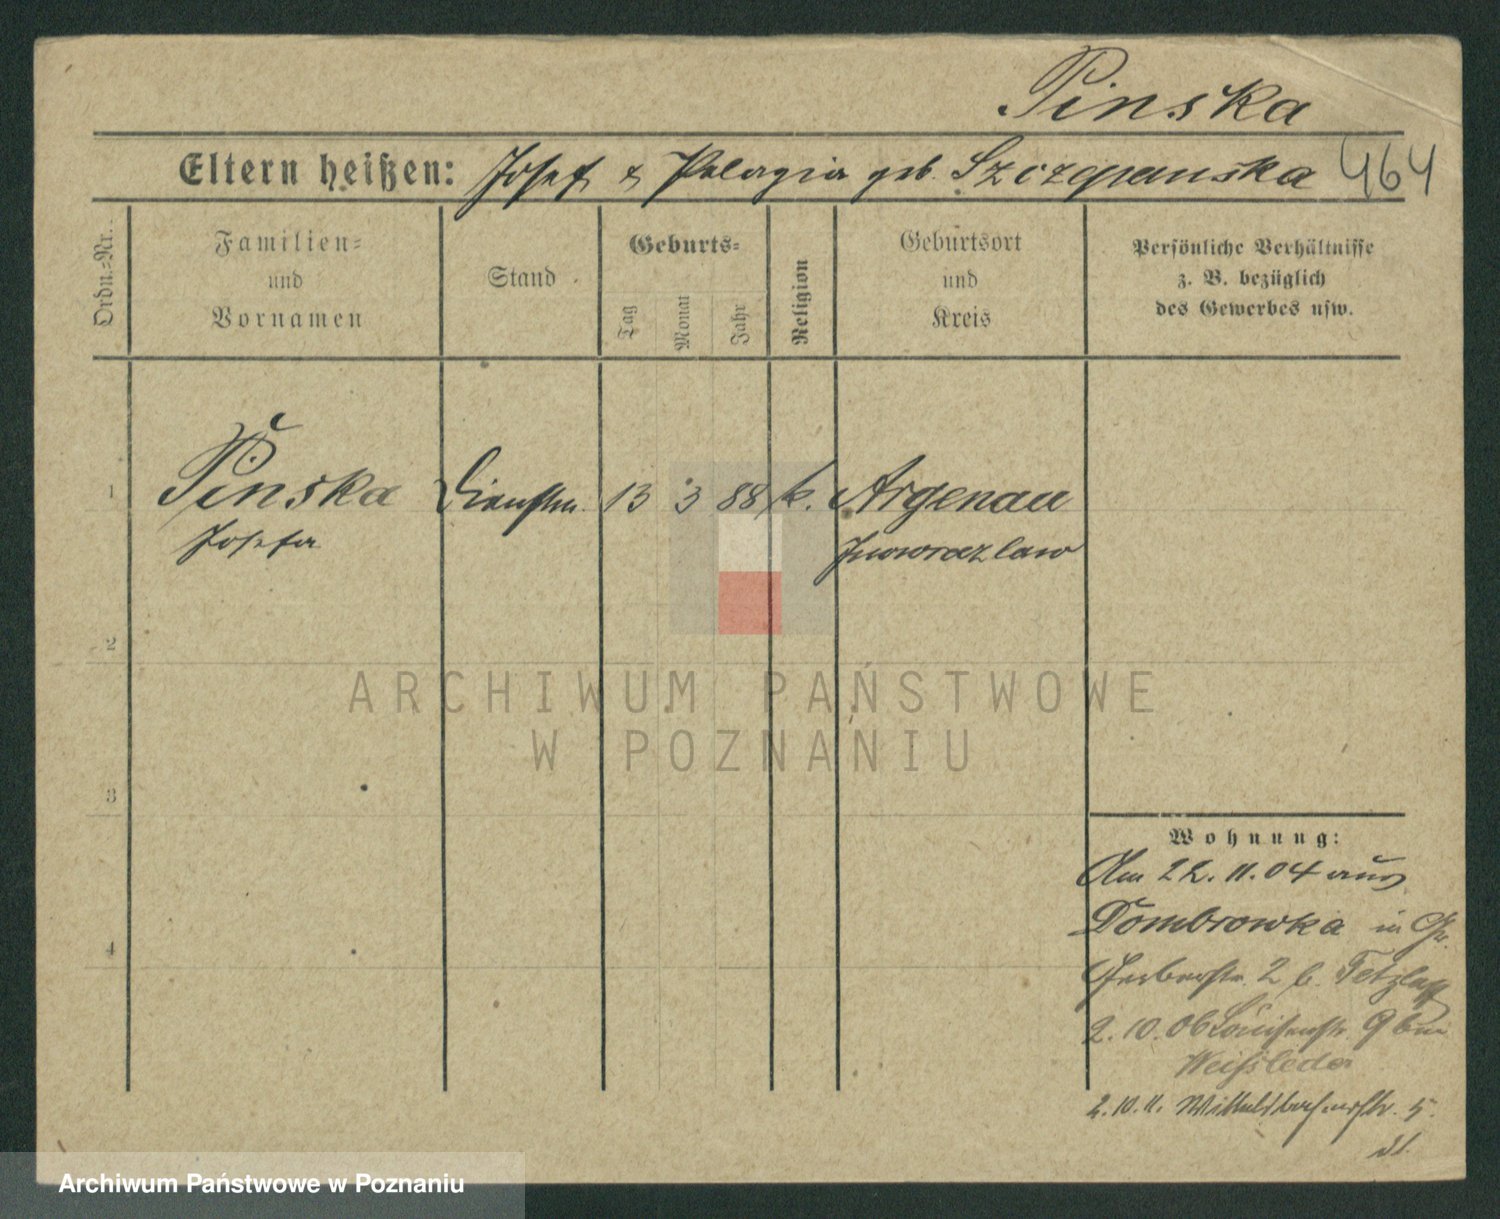 Pinska
Eltern heißen: Josef & Pelagia geb. Szczepanska 464
Ordn.=Nr.
Familien=
und
Vornamen
Stand
Geburts=
Tag
Monat
Jahr
Religion
Geburtsort
und
Kreis
Persönliche Verhältnisse
z. B. bezüglich
des Gewerbes usw.
1 Pinska Dienstm. 13 3 88 k. Argenau
Josefa Inowrazlaw
2
3
4
ARCHIWUM PAŃSTWOWE
W POZNANIU
Wohnung:
Am 22.11.04 aus
Dombrowka in Gr.
Gerberstr. 2 b. Tetzlaff
2.10.06 Louisenstr. 9 bei
Weissleder
2.10.11. Wittelsbacherstr. 5.
Archiwum Państwowe w Poznaniu